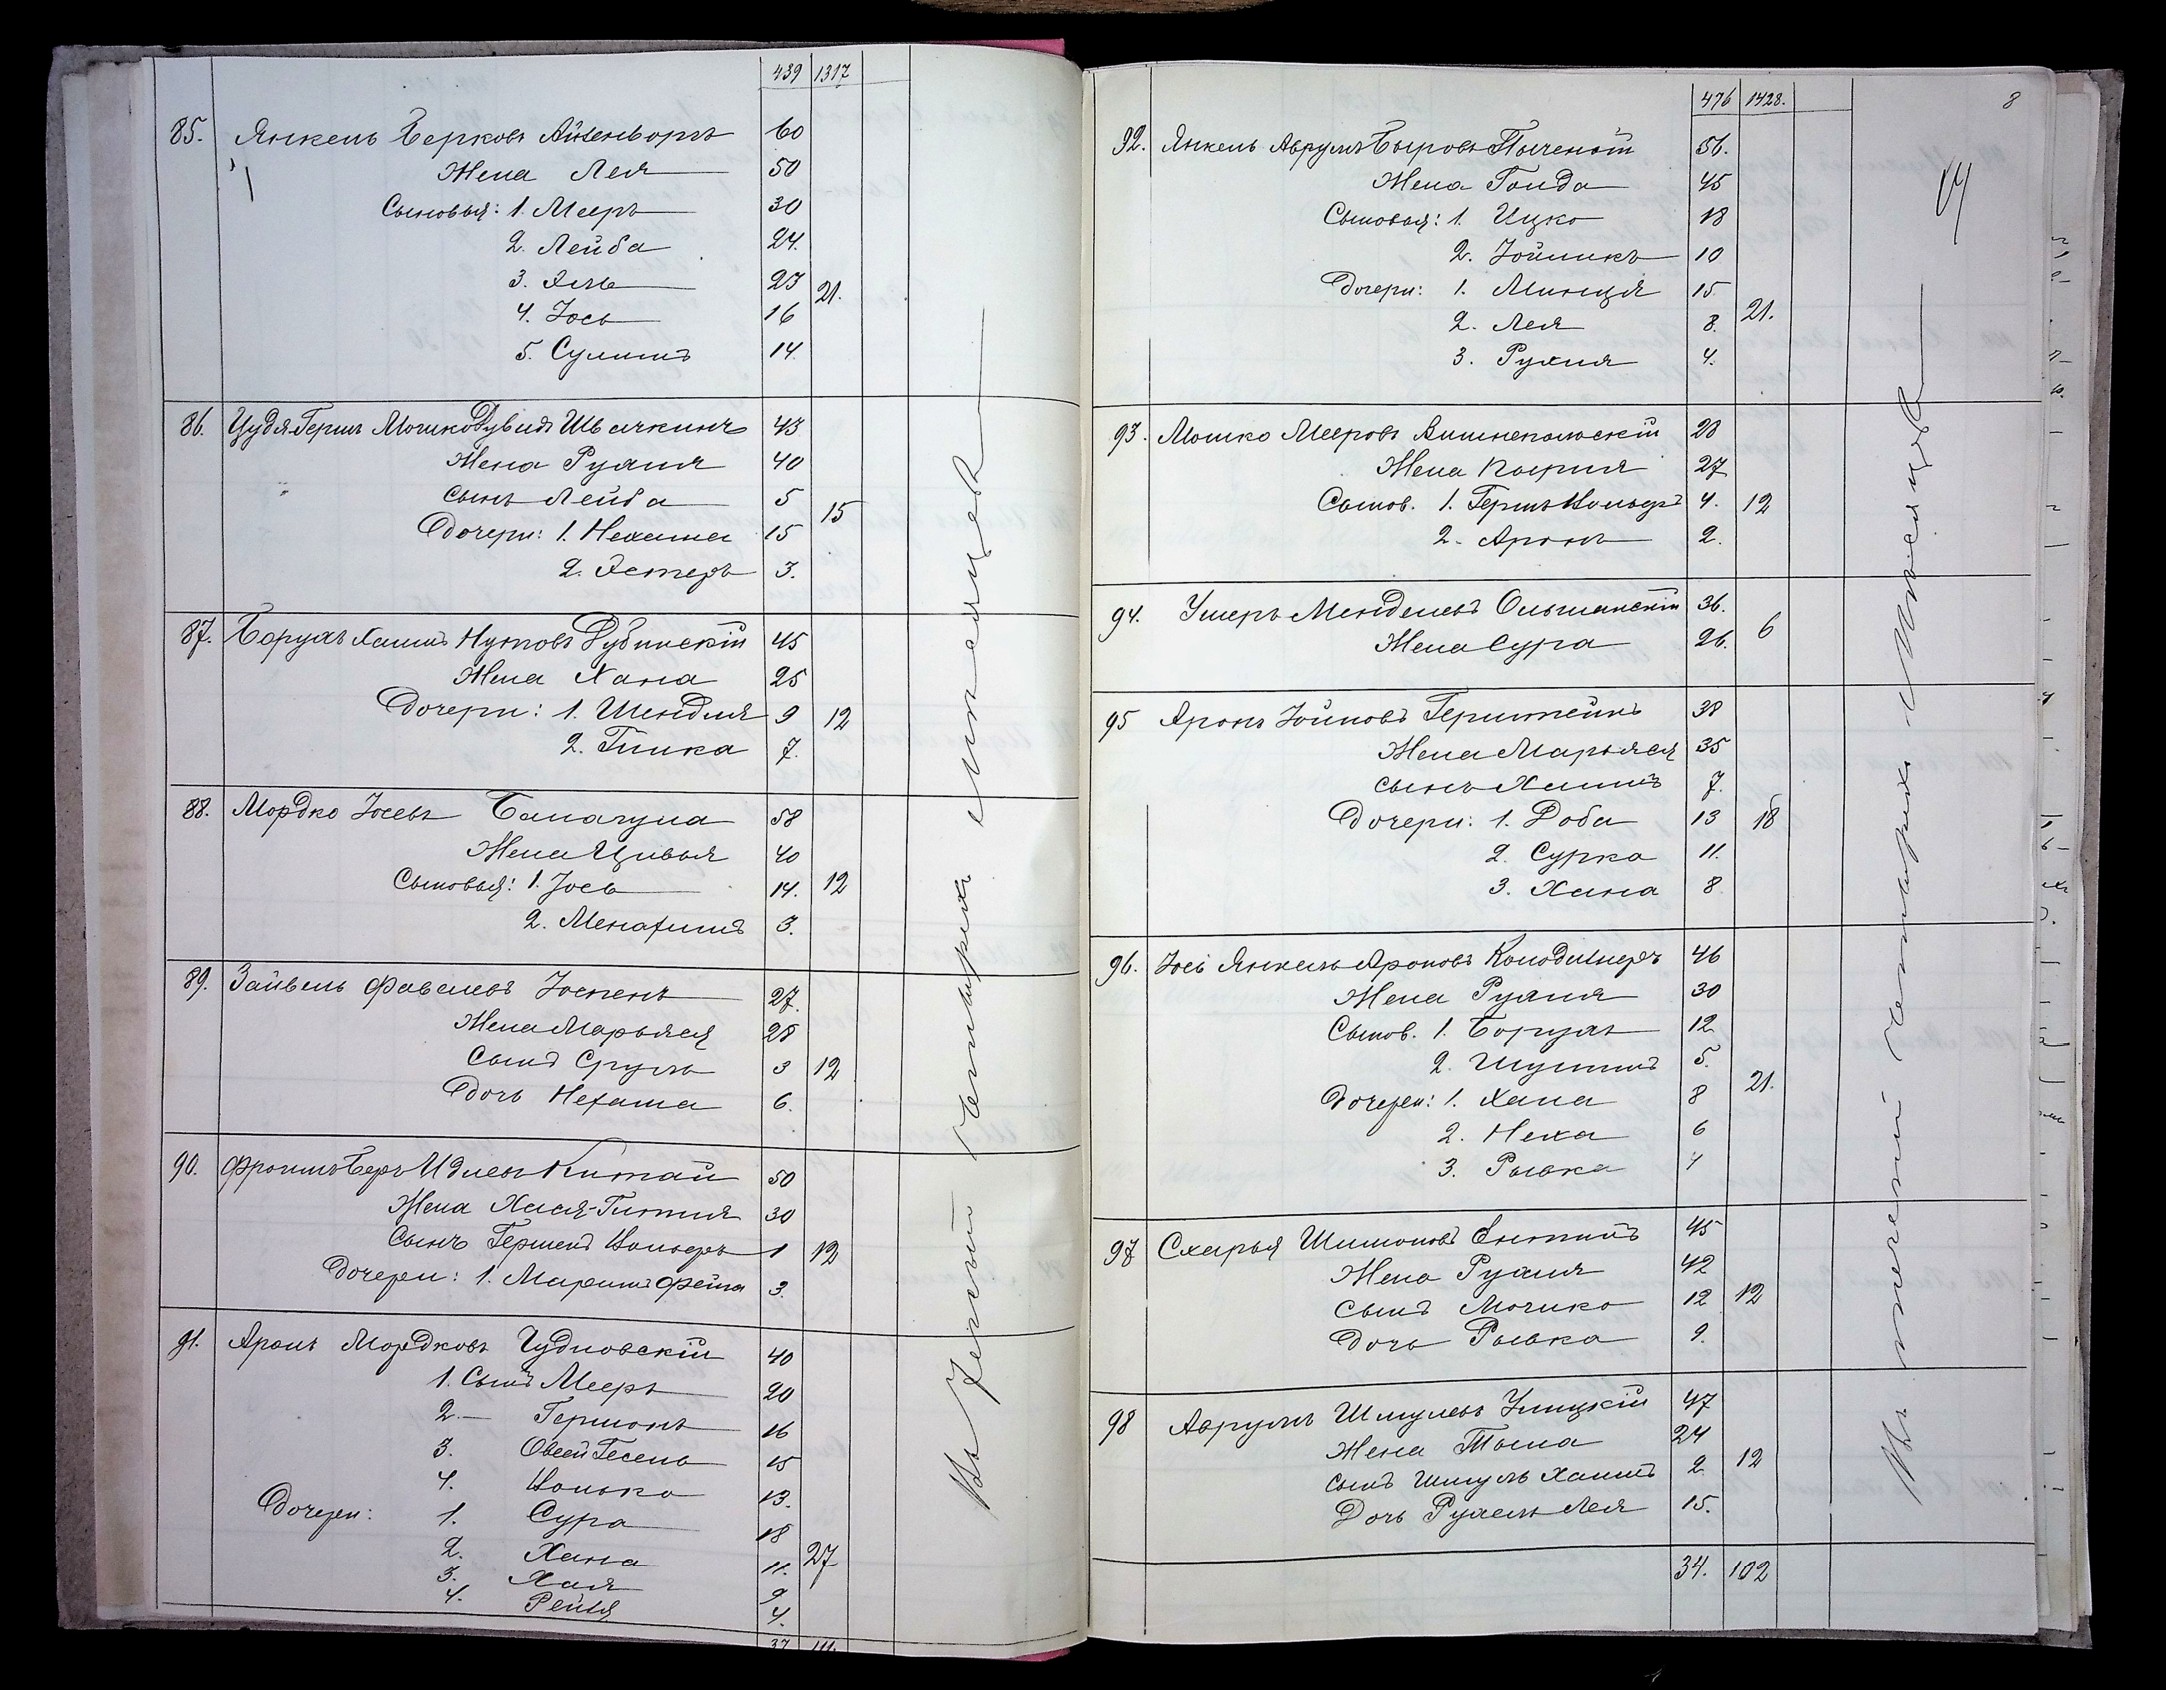 439 1317
85. Янкель Берковъ Айзенборгъ 60
Жена Лея 50
Сыновья: 1. Мееръ 30
2. Лейба 24.
3. Эль 23 21.
4. Іось 16
5. Сулимъ 14.
86. Цудя-Гершъ Мошко Дувидъ 43
Жена Рухля 40
Сынъ Лейба 5
15
Дочери: 1. Нехама 15
2. Эстеръ 3.
87. Борухъ Хаимъ Нутовъ Дубинскій 45
Жена Хана 25
Дочери: 1. Шендля 9 12
2. Гитка 7.
88. Мордко Іосевъ Балагула 58
Жена Цивья 40
Сыновья: 1. Іось 14. 12
2. Менахимъ 3.
89. Зайвель Фавелевъ 27.
Жена Марьяся 28
Сынъ Сруль 3 12
Дочь Нехама 6.
90. Фроимъ Беръ Идлевъ Китай 50
Жена Хася-Гитля 30
Сынъ Гершенъ Вольфъ 1 12
Дочери: 1. Маримъ Фейга 3.
91. Аронъ Мордковъ Чудновскій 40
1. Сынъ Мееръ 20
2.— Гершонъ 16
3. Овсей Гесель 15
4. Волько 13.
Дочери: 1. Сура 18
2. Хана 11. 27
3. Хая 9
4. Рейзя 4.
37 111.
Въ теченій четырехъ мѣсяцевъ
476 1428. 8
92. Янкель Аврумъ Быровъ 56.
Жена Голда 45
Сыновья: 1. Ицко 18
2. Зойликъ 10
Дочери: 1. Минця 15
21.
2. Лея 8.
3. Рухля 4.
93. Мошко Мееровъ Вишнепольскій 28
Жена 27
Сынов. 1. Гершъ Вольфъ 4. 12
2. Аронъ 2.
94. Ушеръ Менделевъ Ольшанскій 36.
Жена Сура 26. 6
95 Аронъ Зойновъ Герштейнъ 38
Жена Марьяся 35
Сынъ Хаимъ 7.
Дочери: 1. Доба 13 18
2. Сурка 11.
3. Хана 8
96. Іось Янкель Ароновъ Колодизнеръ 46
Жена Рухля 30
Сынов. 1. Борухъ 12
2. Шулимъ 5.
Дочери: 1. Хана 8 21.
2. Неха 6
3. Рывка 4
97 Схарья Шимоновъ Ентинъ 45
Жена Рухля 42
Сынъ Мошко 12 12
Дочь Рывка 9.
98 Аврумъ Шмулевъ Улицкій 47
Жена Тыла 24
Сынъ Шмуль Хаимъ 2 12
Дочь Рухель Лея 15.
34. 102
Въ теченій четырехъ мѣсяцевъ